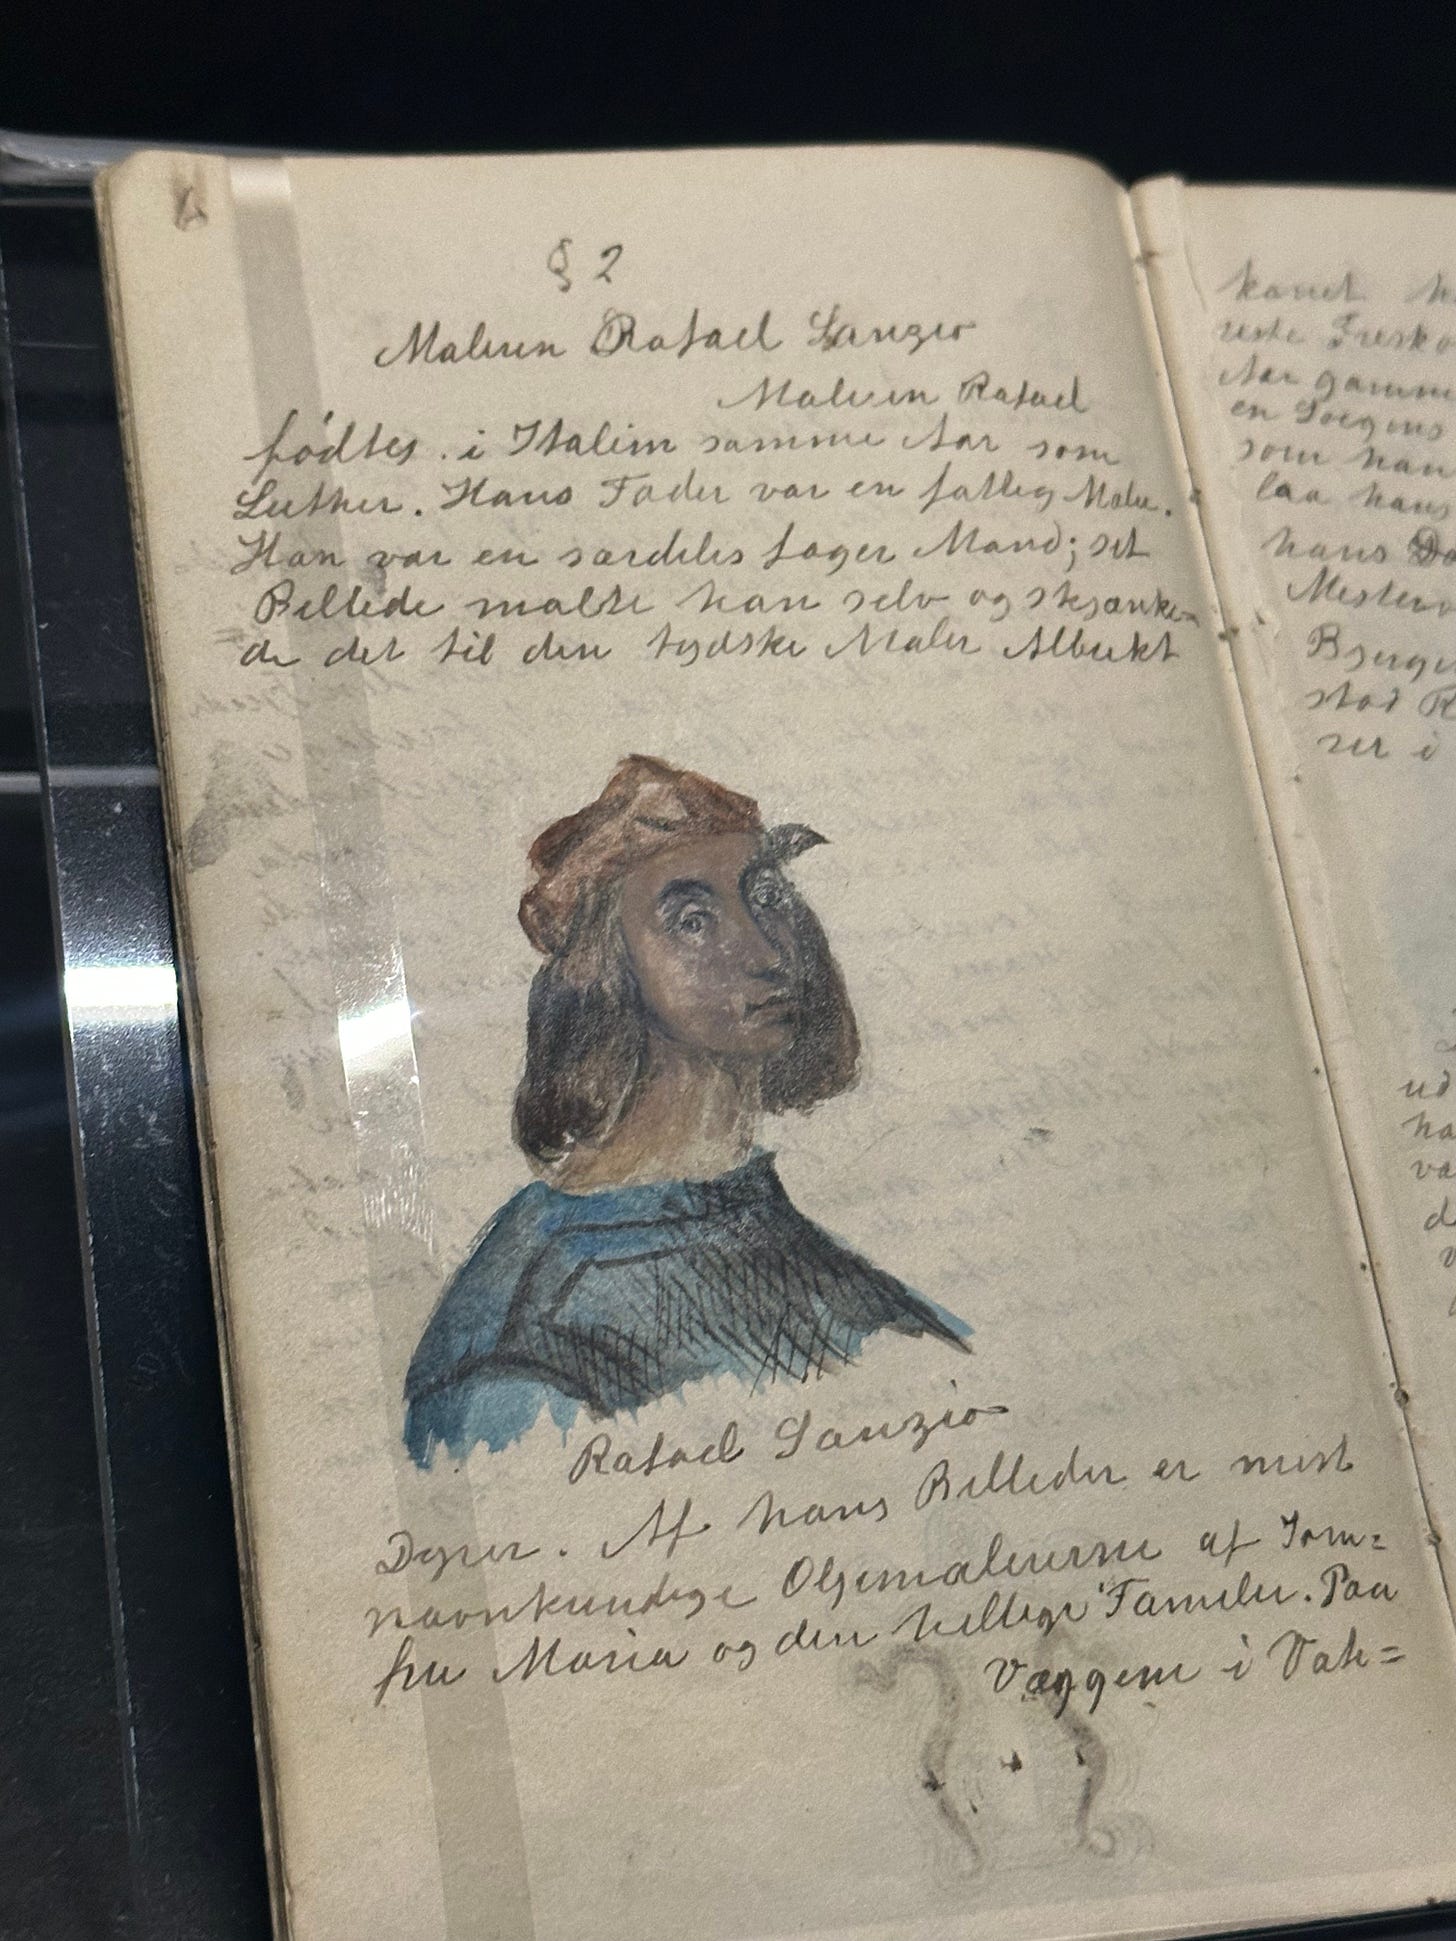 § 2
Maleren Rafael Sanzio
Maleren Rafael
fødtes. i Italien samme Aar som
Luther. Hans Fader var en fattig Maler.
Han var en særdeles fager Mand; sit
Billede malte han selv og skjænke-
de det til den tydske Maler Albrekt
Rafael Sanzio
Dyrer. Af hans Billeder er mest
navnkundige Oljemalerierne af Jom=
fru Maria og den hellige Familie. Paa
Væggene i Vati=
kanet
Fresko
Aar gamme
en
som han
laa hans
hans
Mesterv
Bjerge
stod R
ser i
ud
ha
væ
d
v